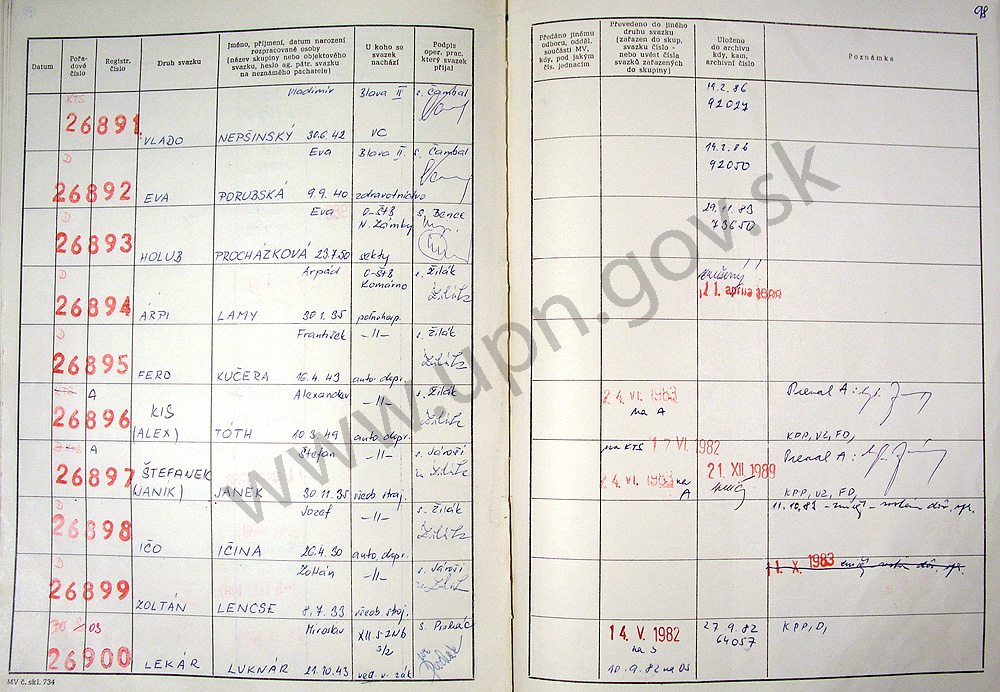 98
Datum
Pořadové číslo
Registr. číslo
Druh svazku
Jméno, příjmení, datum narození rozpracované osoby (název skupiny nebo objektového svazku, heslo ag. pátr. svazku na neznámého pachatele)
U koho se svazek nachází
Podpis oper. prac. který svazek přijal
Předáno jinému odboru, odděl. součásti MV, kdy, pod jakým čís. jednacím
Převedeno do jiného druhu svazku (zařazen do skup. svazku číslo - nebo uvést čísla svazků zařazených do skupiny)
Uloženo do archivu kdy, kam, archivní číslo
Poznámka
KTS
Vladimír Blava II s. Čambal
26891 VLADO NEPŠINSKÝ 30.6.42 VC
19.2.86
92027
D Eva Blava II. s. Čambal
26892 EVA PORUBSKÁ 9.9.40 zdravotníctvo
19.2.86
92050
D Eva O-ŠtB N. Zámky s. Bence
26893 HOLUB PROCHÁZKOVÁ 23.7.50 sekty
29.11.83
73650
D Arpád O-ŠtB Komárno s. Žilák
26894 ÁRPI LAMY 30.1.35 poľnohosp.
zničený
D František -II- s. Žilák
26895 FERO KUČERA 16.4.43 auto dopr.
A Alexander -II- s. Žilák
26896 KIŠ (ALEX) TÓTH 10.3.49 auto dopr.
24. VI. 1983
na A
KPP, VZ, FD,
A Štefan -II-
26897 ŠTEFANEK (JANIK) JANEK 30.11.35 všeob stroj.
na KTS 17 VI. 1982
24. VI. 1983 na A
21. XII 1989
KPP, VZ, FD,
D Jozef -II- s. Žilák
26898 IČO IČINA 20.4.30 auto dopr.
D Zoltán -II-
26899 ZOLTÁN LENCSE 8.7.33 všeob. stroj.
11. X. 1983
03 Miroslav
26900 LEKÁR LUKNÁR 21.10.43
14. V. 1982
na S
10.9.82 na 03
27.9.82
64057
KPP, D,
MV č. skl. 734
www.upn.gov.sk